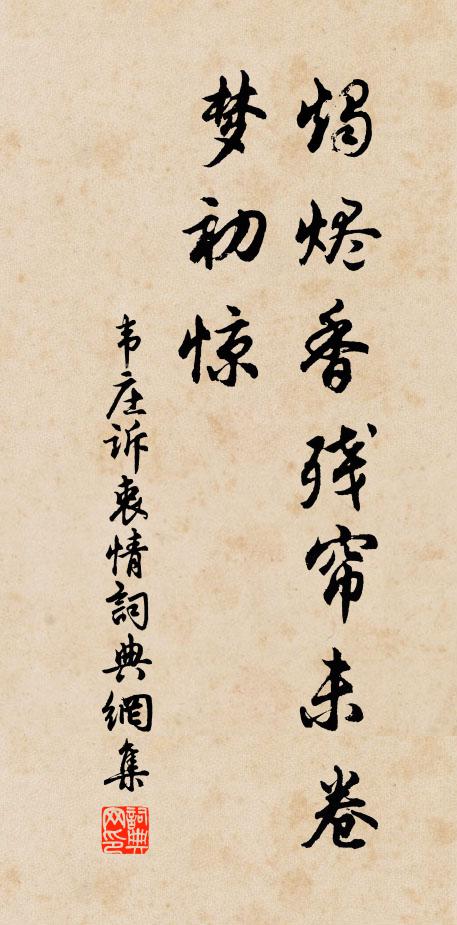 燭烬香残帘未卷
梦初惊
韦庄诉衷情詞典網集
詞典网印